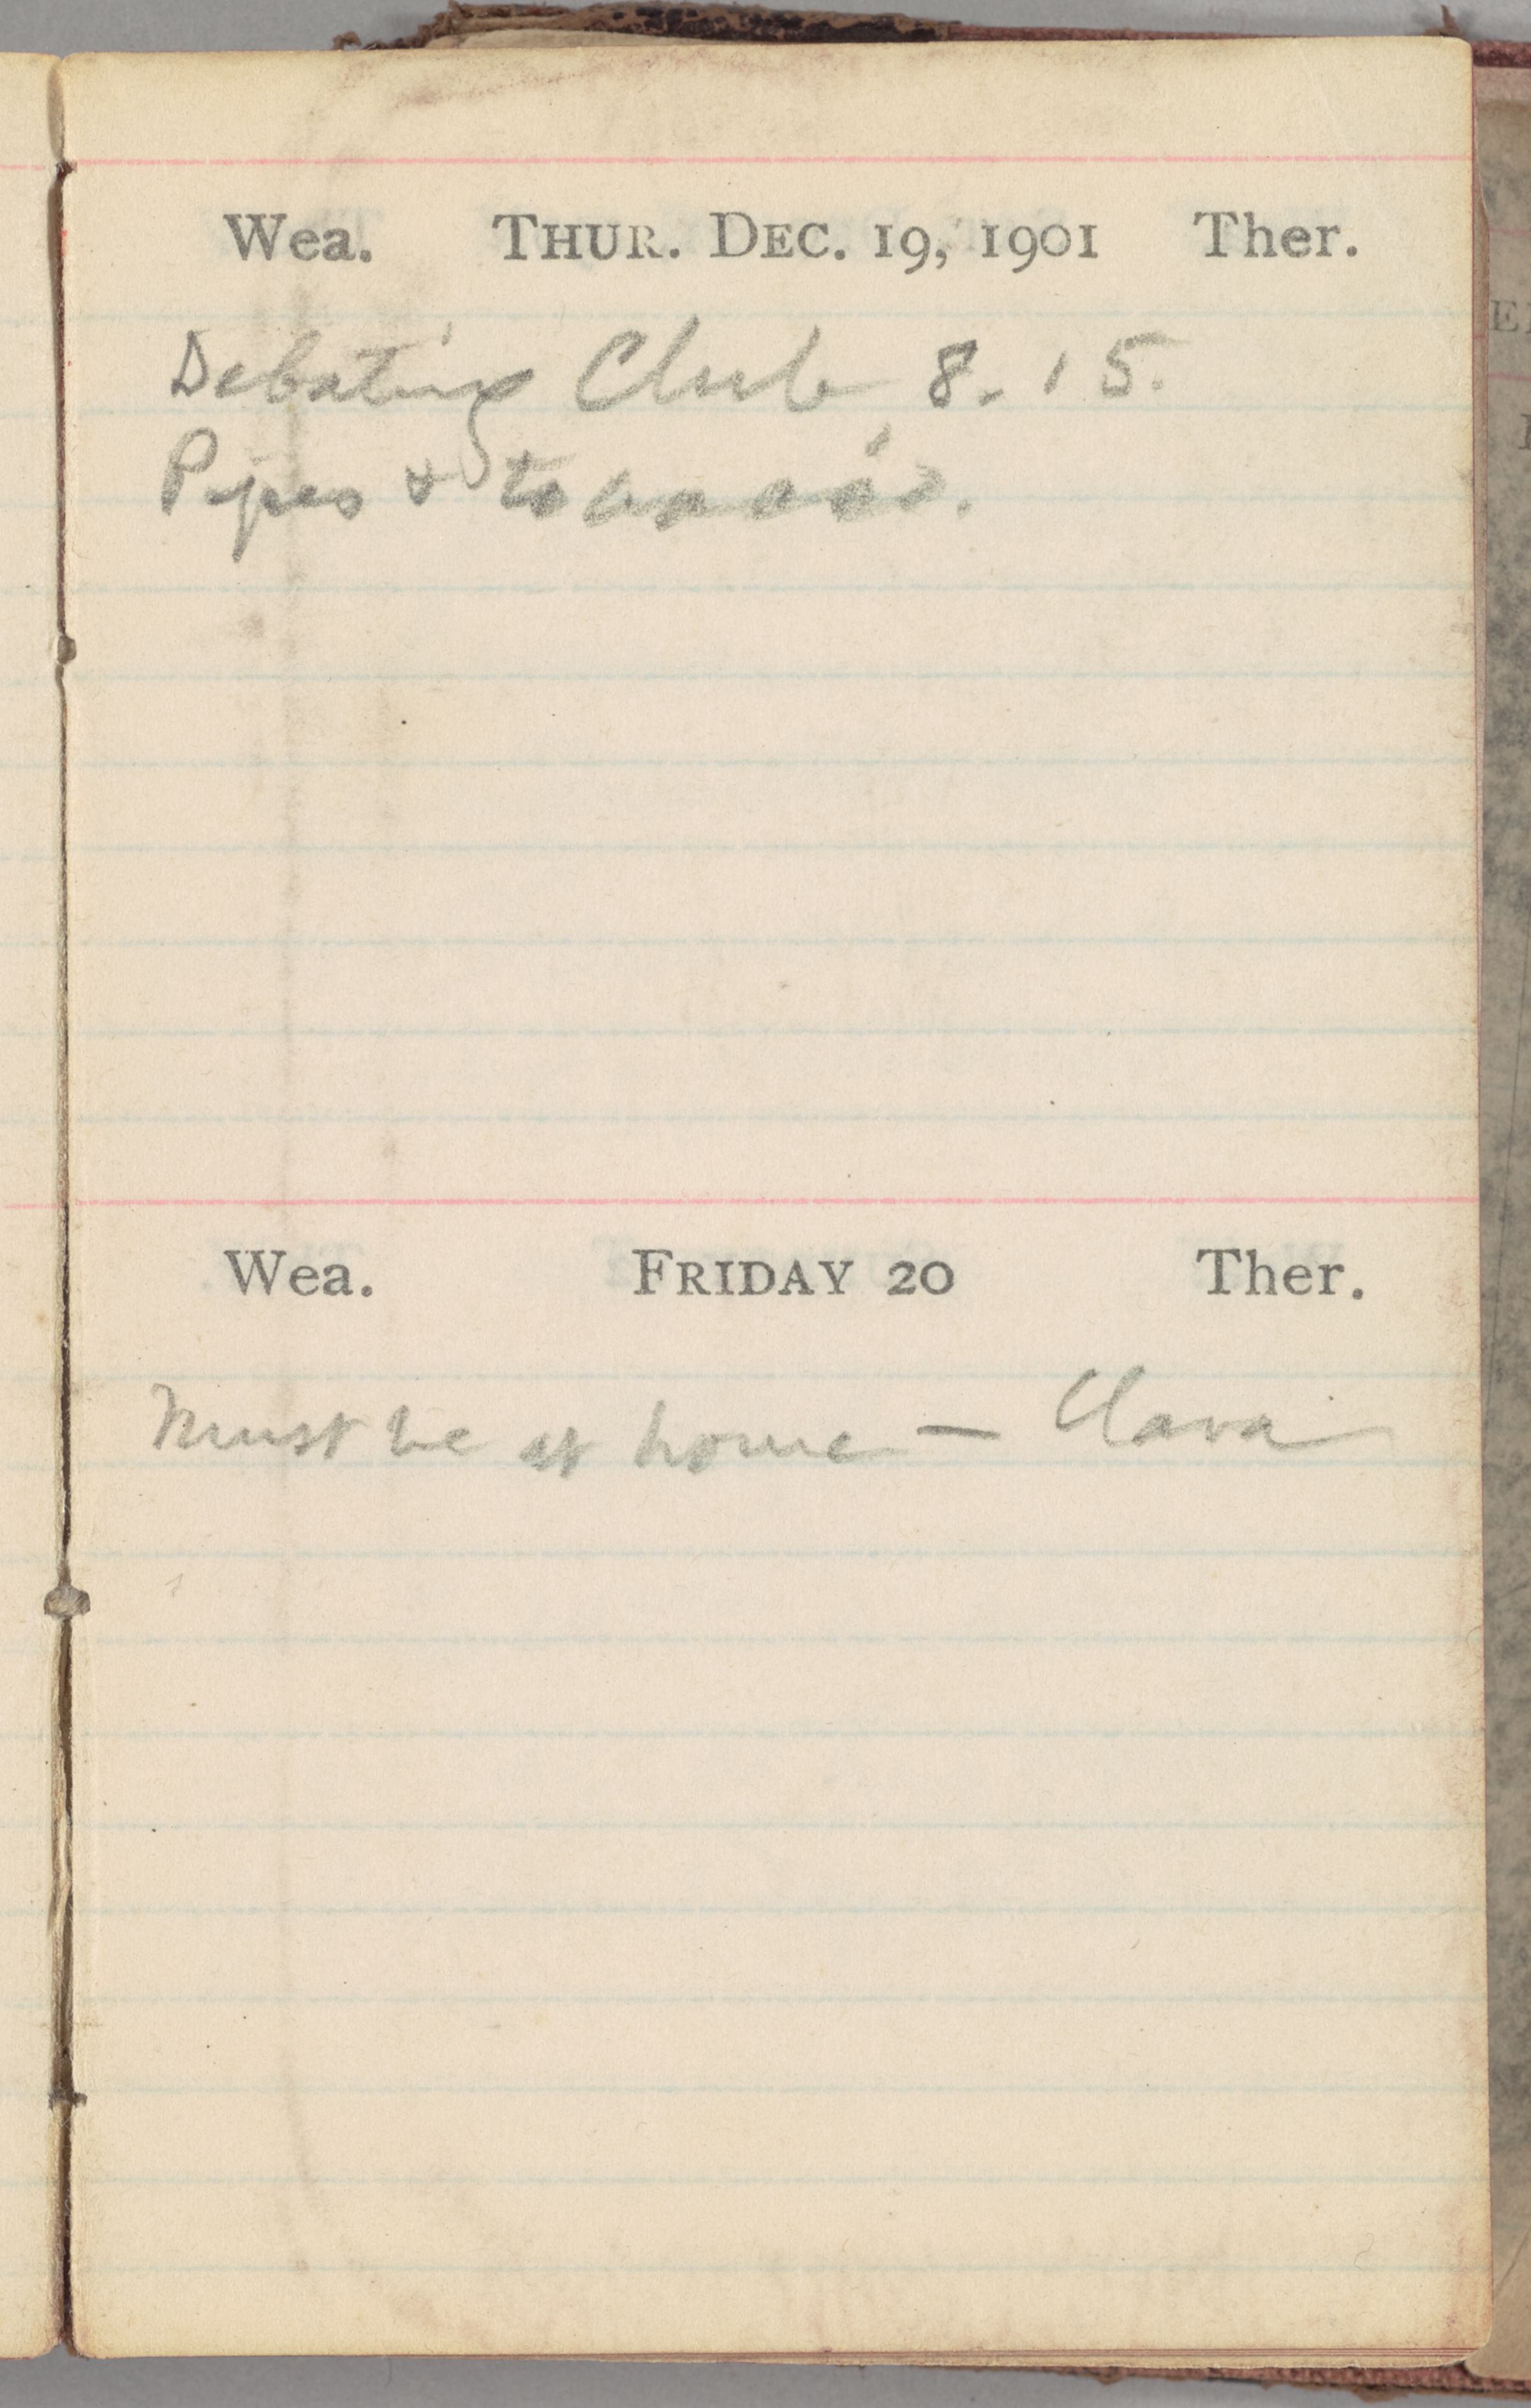 Wea. THUR. DEC. 19, 1901 Ther.
Debating Club 8.15.
Pipes & tobacco.
Wea. FRIDAY 20 Ther.
Must be at home — Clara